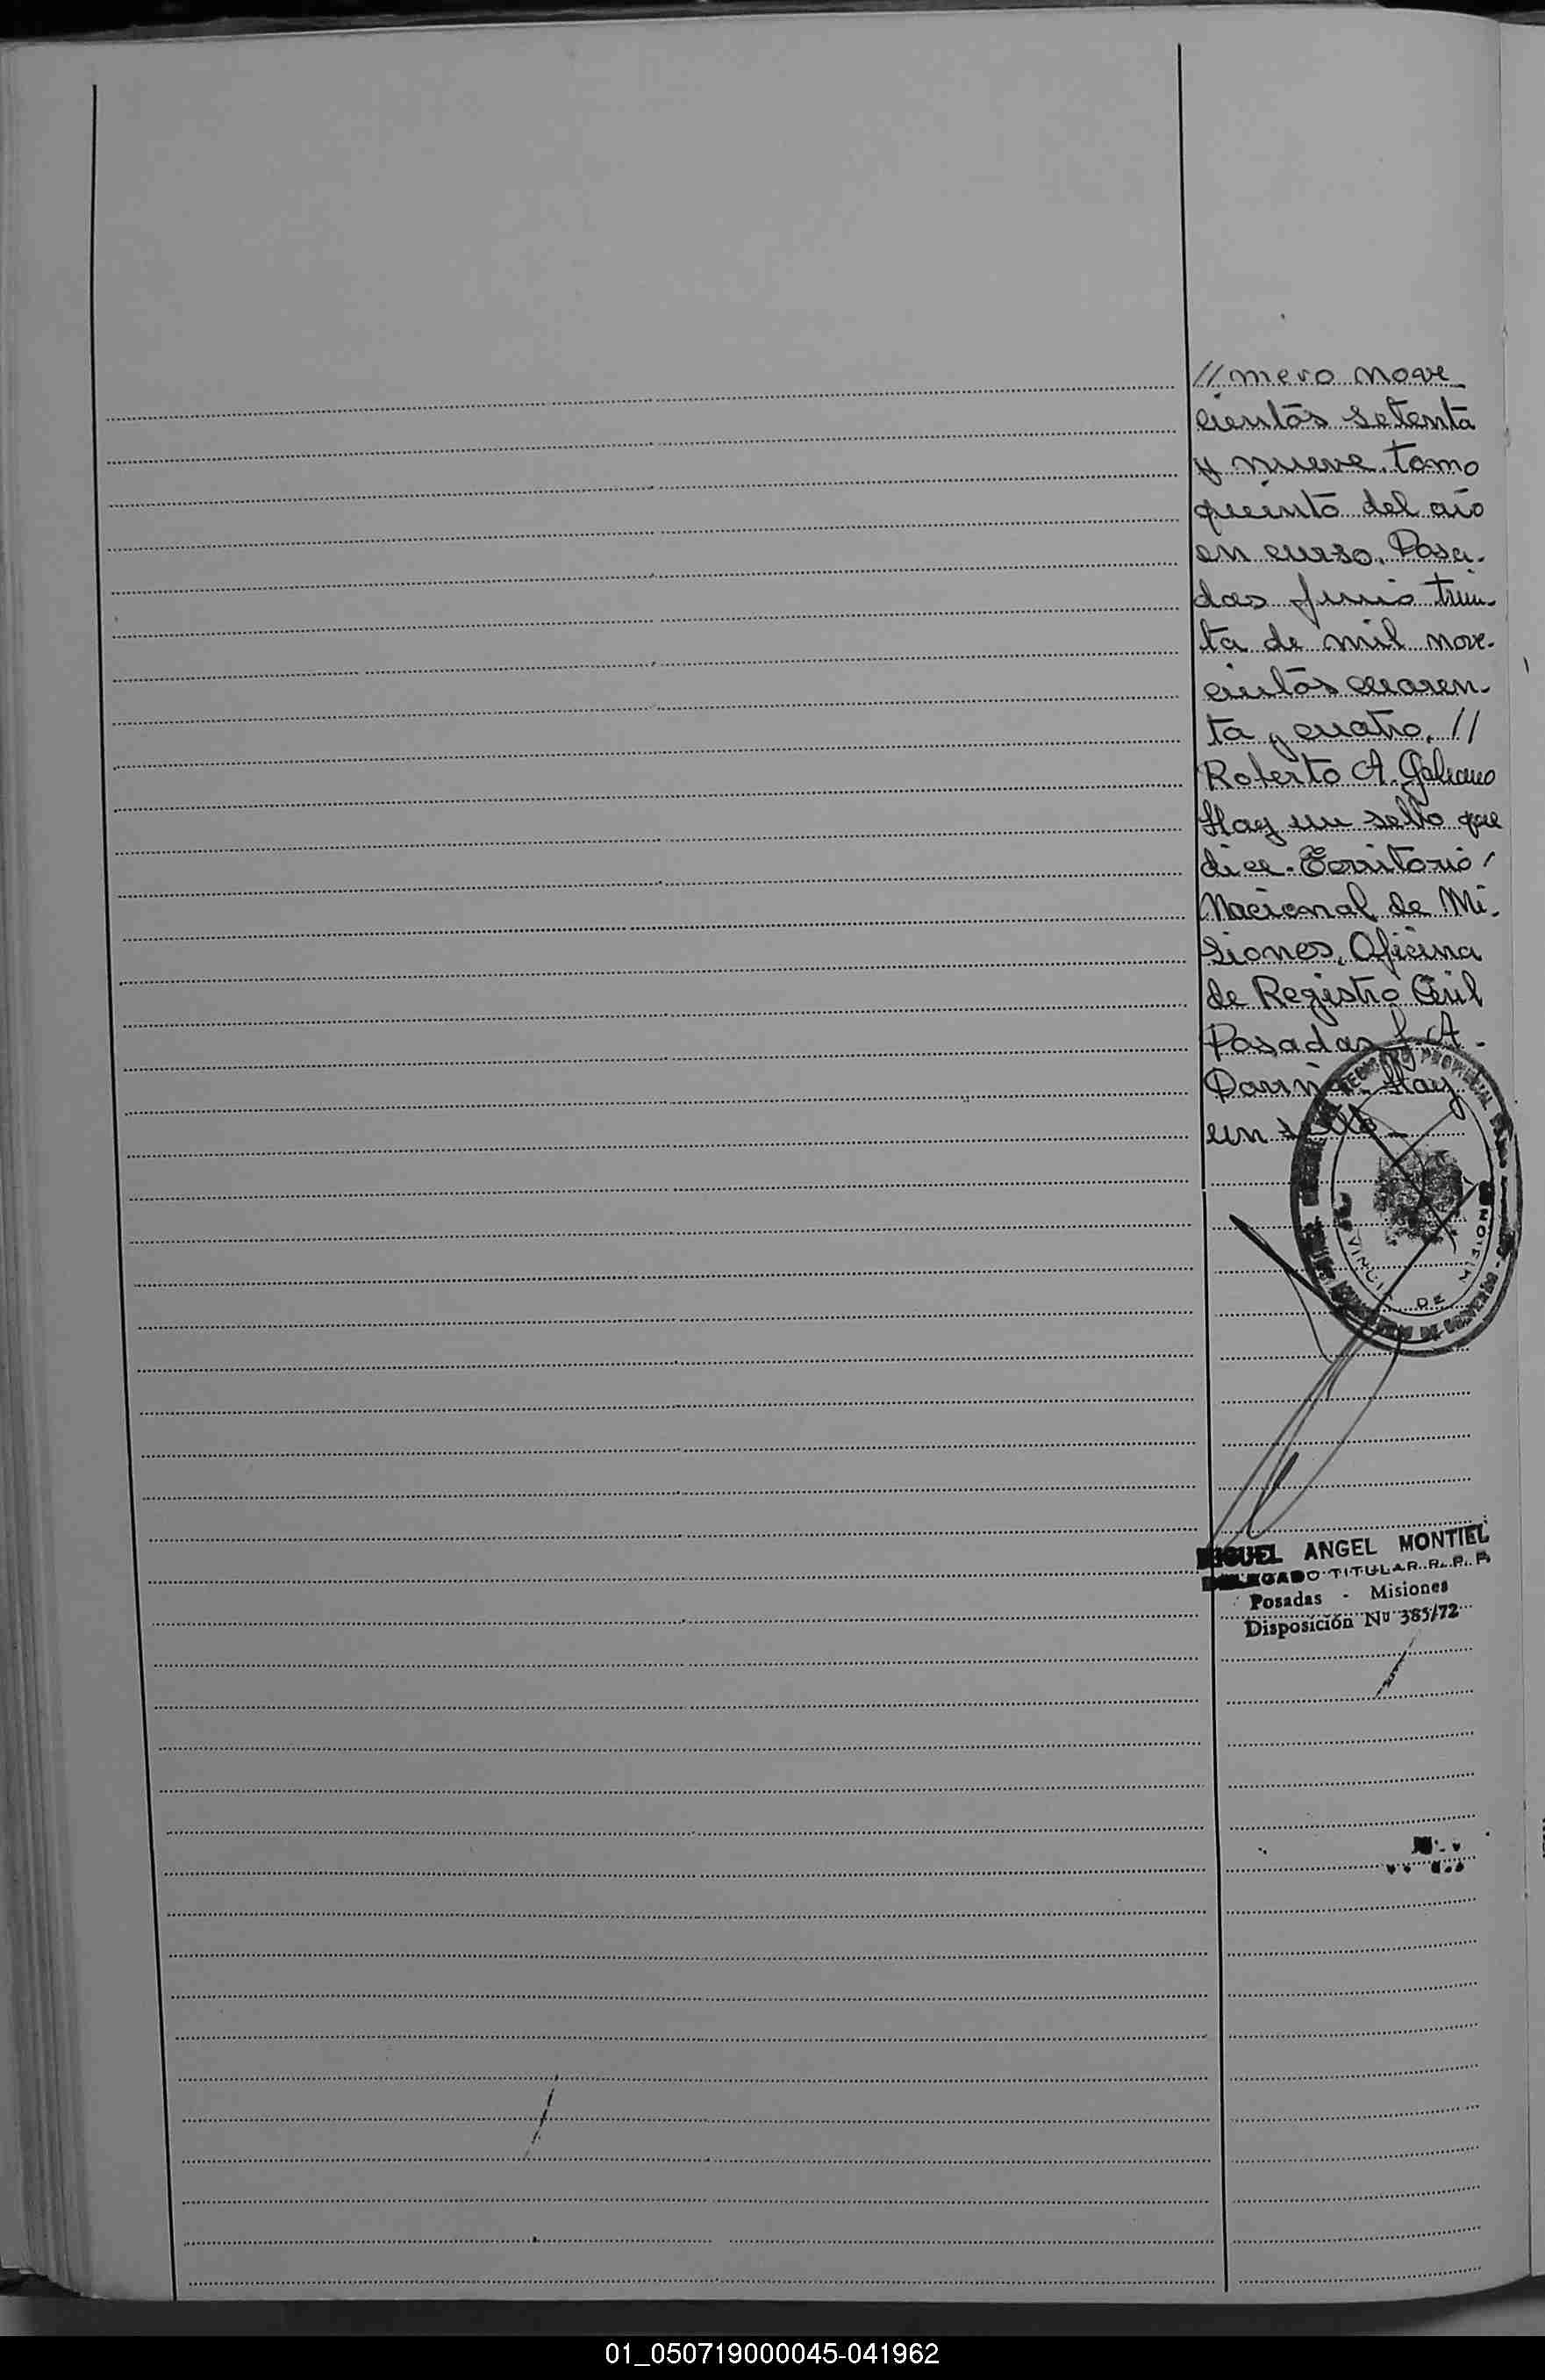 //mero nove
cientos setenta
y nueve. tomo
quinto del año
en curso. Posa-
das junio trein-
ta de mil nove-
cientos cuaren-
ta y cuatro. //
Roberto A. Galeano
Hay un sello que
dice. Territorio
Nacional de Mi-
siones. Oficina
de Registro Civil
Posadas A.
Hay
un sello
PROVINCIAL
DE MISIONES
MINISTERIO DE GOBIERNO
MIGUEL ANGEL MONTIEL
DELEGADO TITULAR R. P. P.
Posadas - Misiones
Disposición Nº 385/72
01_050719000045-041962